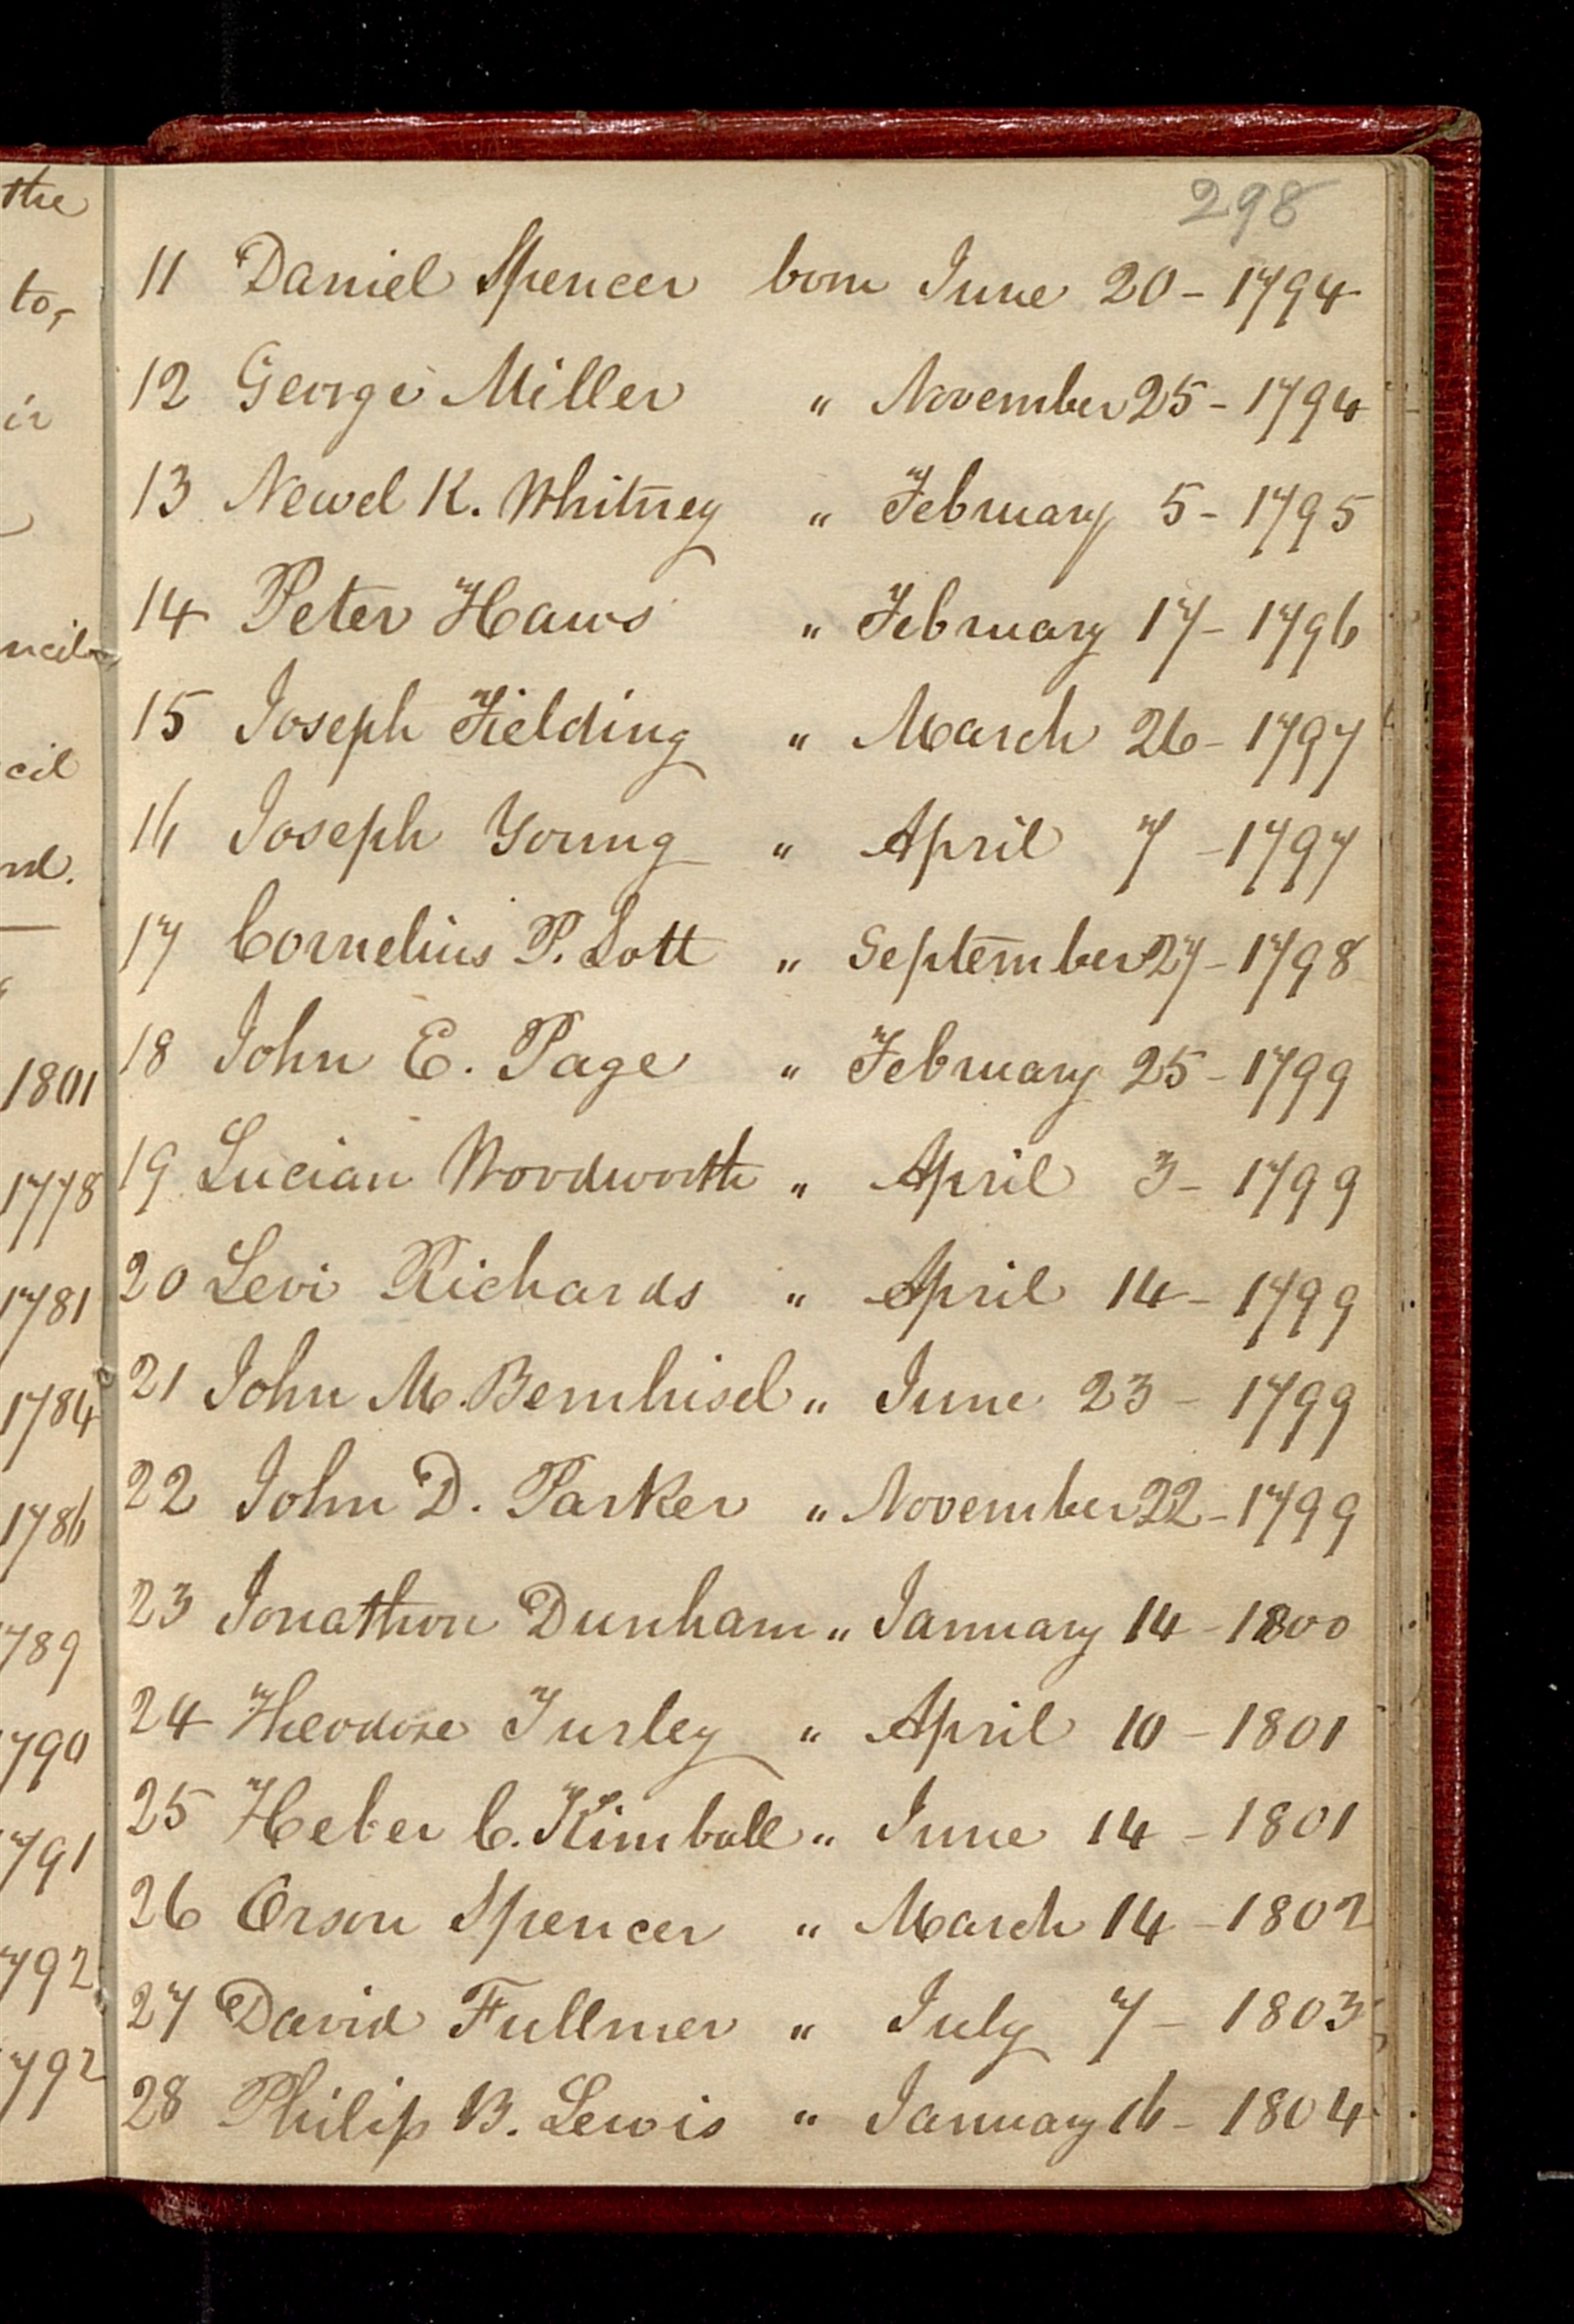 the
to,
ir
ncil
cil
nd.
1801
1778
1781
1784
1786
789
790
791
792
792
298
11 Daniel Spencer born June 20 - 1794
12 George Miller " November 25 - 1794
13 Newel K. Whitney " February 5 - 1795
14 Peter Haws " February 17 - 1796
15 Joseph Fielding " March 26 - 1797
16 Joseph Young " April 7 - 1797
17 Cornelius P. Lott " September 27 - 1798
18 John E. Page " February 25 - 1799
19 Lucian Woodworth " April 3 - 1799
20 Levi Richards " April 14 - 1799
21 John M. Bernhisel " June 23 - 1799
22 John D. Parker " November 22 - 1799
23 Jonathon Dunham " January 14 - 1800
24 Theodore Turley " April 10 - 1801
25 Heber C. Kimball " June 14 - 1801
26 Orson Spencer " March 14 - 1802
27 David Fullmer " July 7 - 1803
28 Philip B. Lewis " January 16 - 1804